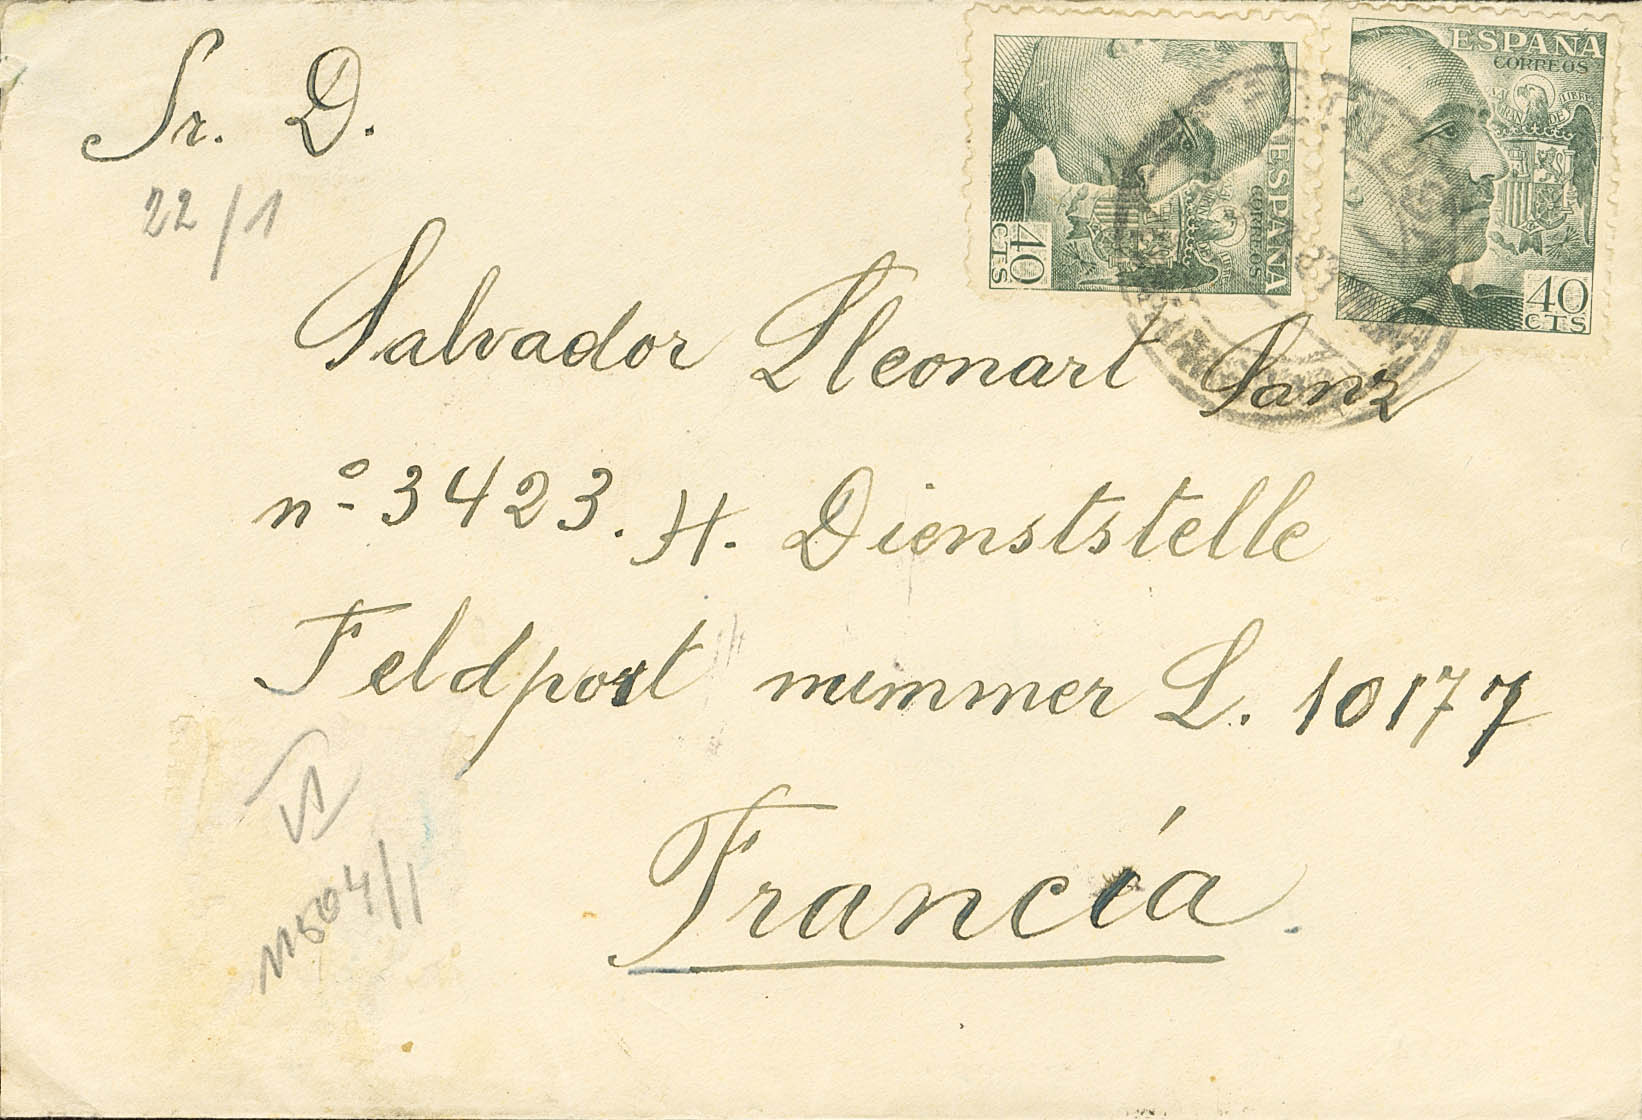 Sr. D.
22/1
ESPAÑA
CORREOS
40
CTS
ESPAÑA
CORREOS
UNA
GRANDE
LIBRE
40
CTS
Salvador Lleonart Sanz
nº 3423. H. Dienststelle
Feldpost nummer L. 10177
VI
Francía.